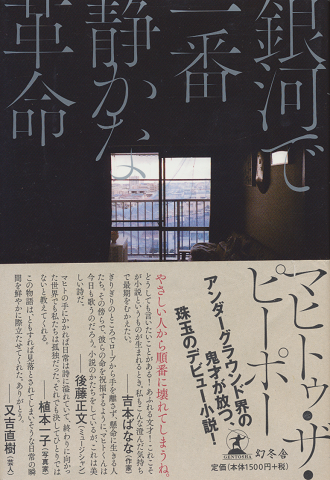 銀河で
一番
静かな
革命
マヒトゥ・ザ・
ピーポー
アンダーグラウンド界の
鬼才が放つ、
珠玉のデビュー小説!
GENTOSHA
幻冬舎
定価(本体1500円+税)
やさしい人から順番に壊れてしまうね。
どうしても言いたいことがある!あふれる文才!これこそ
が小説というものが生まれるとき。私もこんな澄んだ気持ち
で最期をむかえたい。
――吉本ばなな(作家)
ぎりぎりのところでロープから手を離さず、懸命に生きる人
たち。その傍らで、彼らの命を祝福するように、マヒトくんは
今日も歌うのだろう。小説のかたちをしているが、これは美
しい詩だ。
――後藤正文(ミュージシャン)
マヒトの手にかかれば日常は詩に溢れていて、終わりに向かっ
た世界でも私たちは孤独だった。それでも
ないと教えてくれる。
――植本一子(写真家)
この物語は、ともすれば見落とされてしまいそうな日常の瞬
間を鮮やかに際立たせてくれた。ありがとう。
――又吉直樹(芸人)